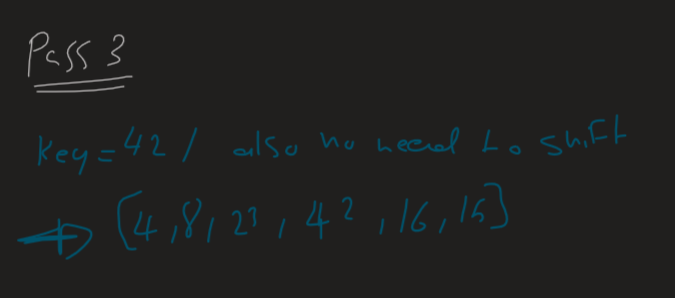 Pass 3
Key=42 / also no need to shift
→ [4, 8, 23, 42, 16, 15]